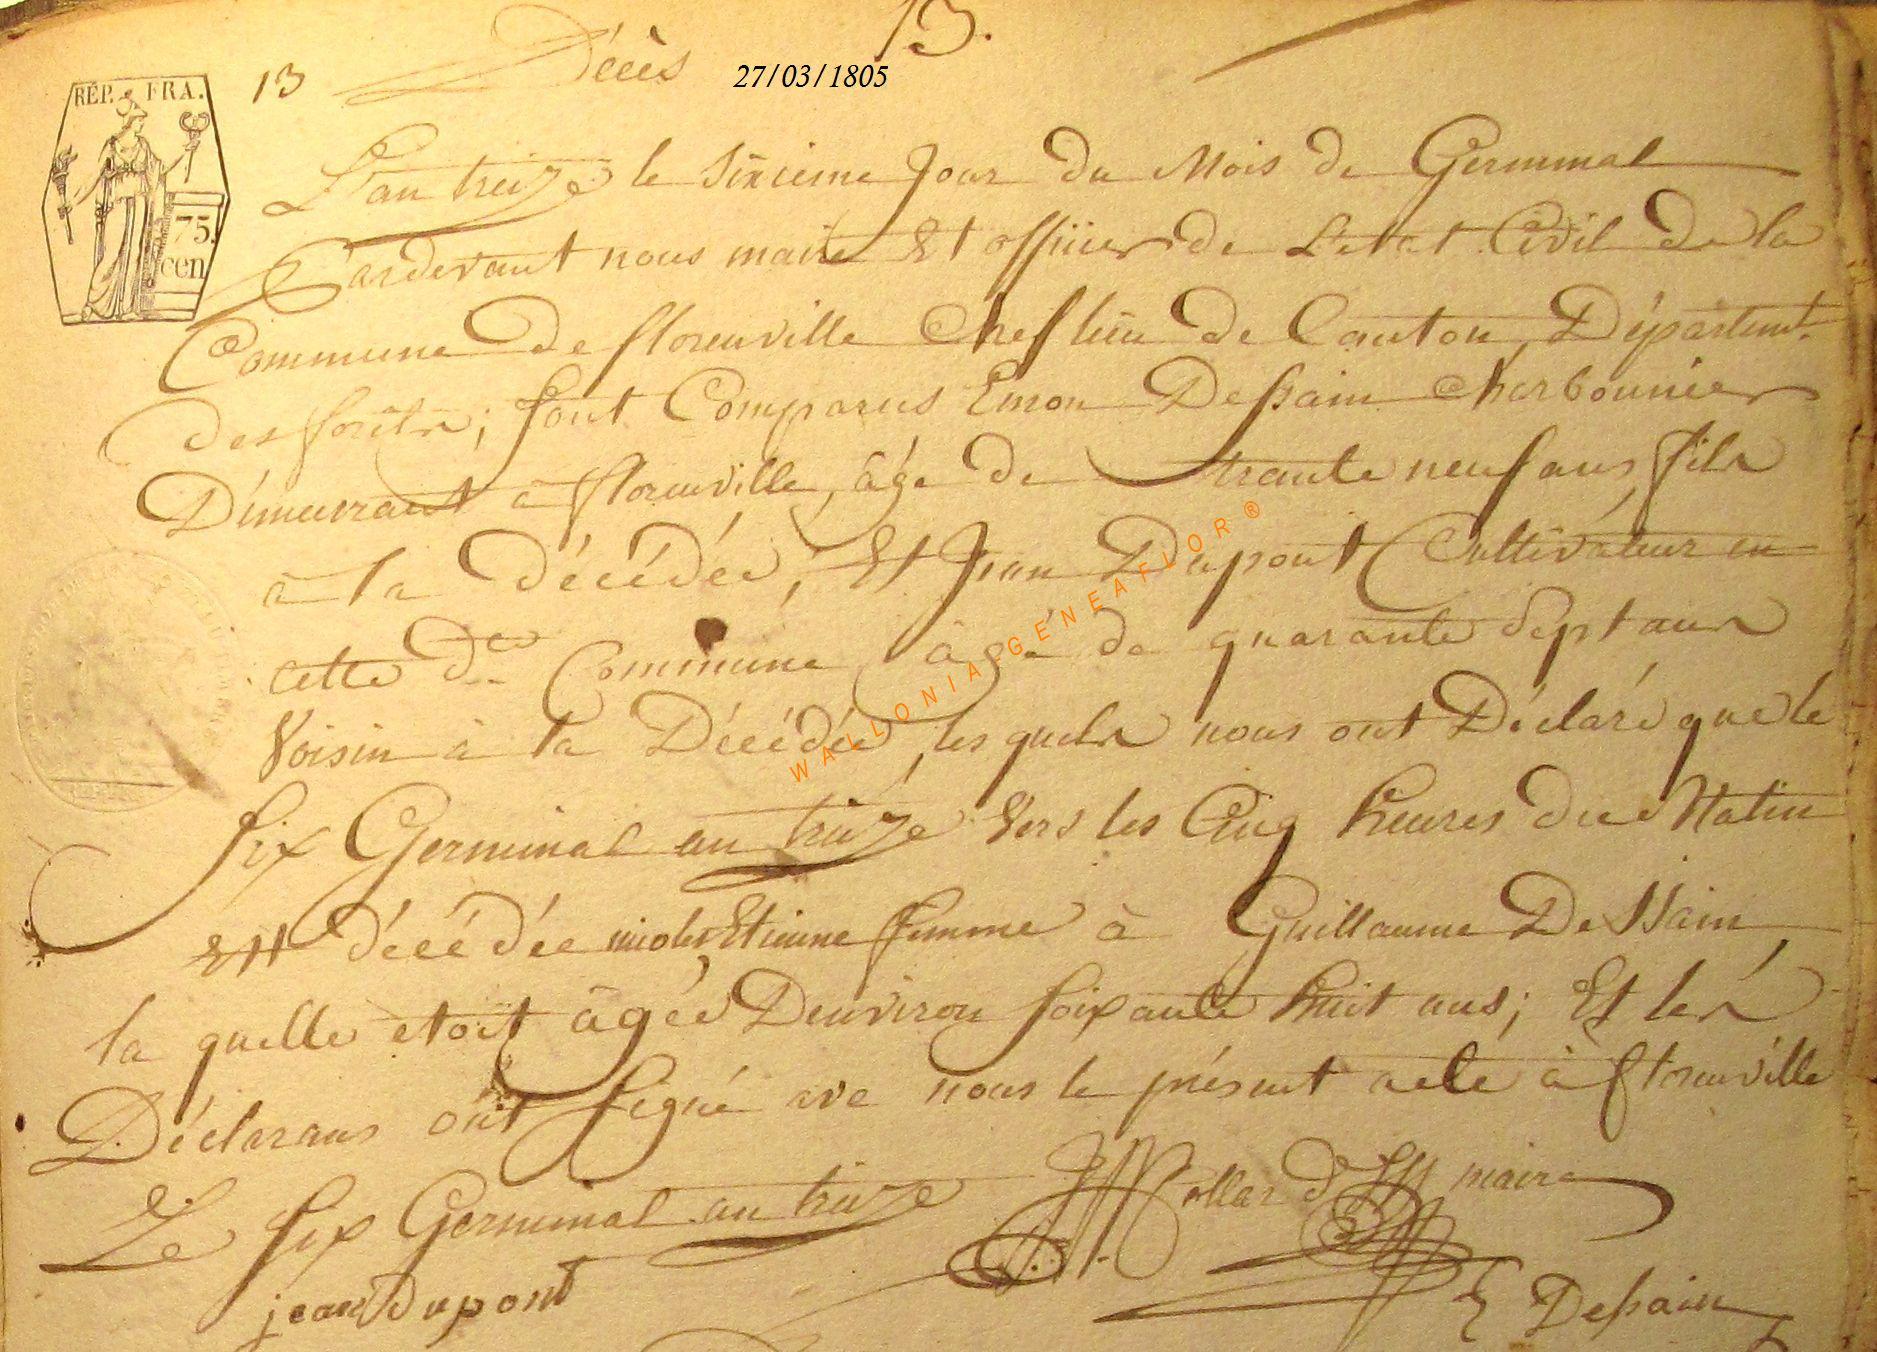 13.
13 Décès 27/03/1805
RÉP. FRA.
75.
cen
L'an treize le Sixieme Jour du Mois de Germinal
Pardevant nous maire Et officier de L'etat Civil de la
Commune de florenville Chef lieu de Canton, Départemt.
des forêts; sont Comparus Emon Dessain Charbonnier
Demeurant a florenville, âgé de trante neuf ans, fils
a la décédée, Et Jean Dupont Cultivateur en
cette de. Commune, âgé de quarante Sept ans
Voisin à la Décédée, les quels nous ont Déclaré que le
six Germinal an treize Vers les Cinq heures du Matin
Est décédée nicole Etienne femme à Guillaume DeSSain,
la quelle etoit âgée D'environ soixante huit ans; Et les
Déclarans ont signé ave nous le présent acte à florenville
Le six Germinal an treize
Mollard maire
jean dupont
E Dessain
WALLONIA-GÉNÉAFLOR ®